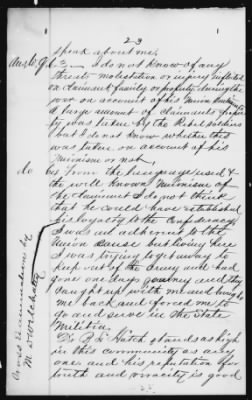 23
speak about me.
Ans to Q 6 I do not know of any
threats molestation or injury inflicted
on claimant family or property during the
war on account of his Union
a large amount of claimants property
was taken by the Rebel Soldiers
but I do not know whether this
was taken on account of his
Unionism or not.
do from the language used &
the well known Unionism of
the claimant I do not think
that he could have established
his loyalty to the Confederacy
I was not adherent to the
Union Cause but living here
I was trying to get away to
keep out of the army and had
gone one days journey and they
caught up with me and brought
me back and forced me to
go and serve in the State
Militia.
Dr. Hatch stands as high
in this community as any
one and his reputation for
truth and veracity is good
Cross Examination by